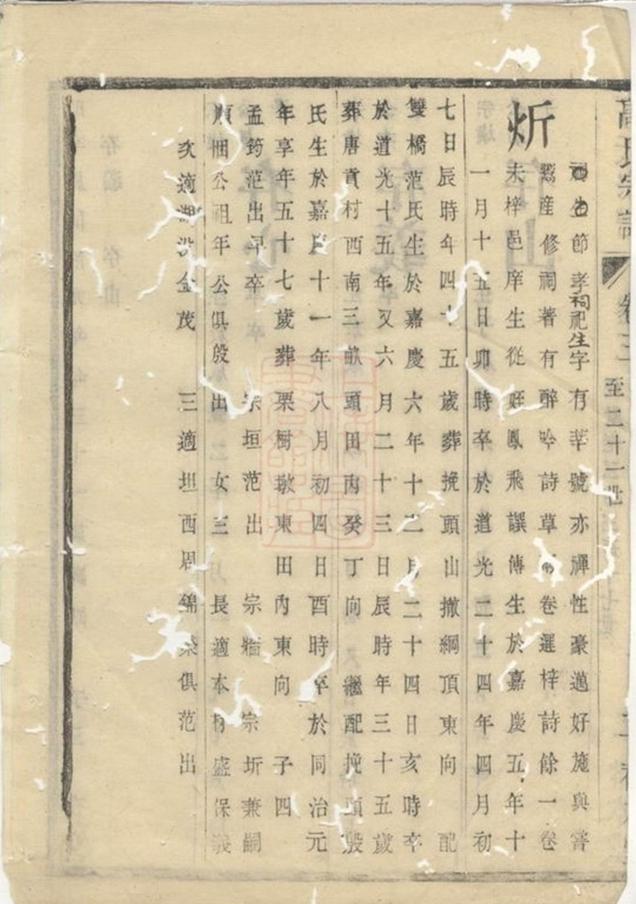 高氏宗譜 卷三 至二十一世
炘
節孝祠祀生字有莘號亦禪性豪邁好施與嘗
產修祠著有醉吟詩草 卷選梓詩餘一卷
未梓邑庠生從姪鳳飛譔傳生於嘉慶五年十
一月十五日卯時卒於道光二十四年四月初
七日辰時年四十五歲葬挽頭山撤網頂東向 配
雙橋范氏生於嘉慶六年十二月二十四日亥時卒
於道光十五年又六月二十三日辰時年三十五歲
葬唐貢村西南三畝頭田內癸丁向 又繼配挽頭殷
氏生於嘉慶十一年八月初四日酉時卒於同治元
年享年五十七歲葬栗樹墩東田內東向 子四
孟筠范出早卒 宗垣范出 宗墻 宗圻兼嗣
順 公祖年公俱殷出 女三 長適本村盛保義
次適湖 金茂 三適坦西周錦榮俱范出